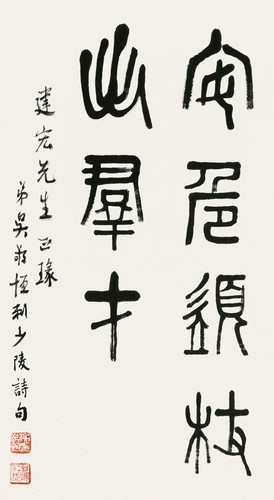 安危須杖
出羣才
建宏先生正瑑
弟吳敬恆少陵詩句